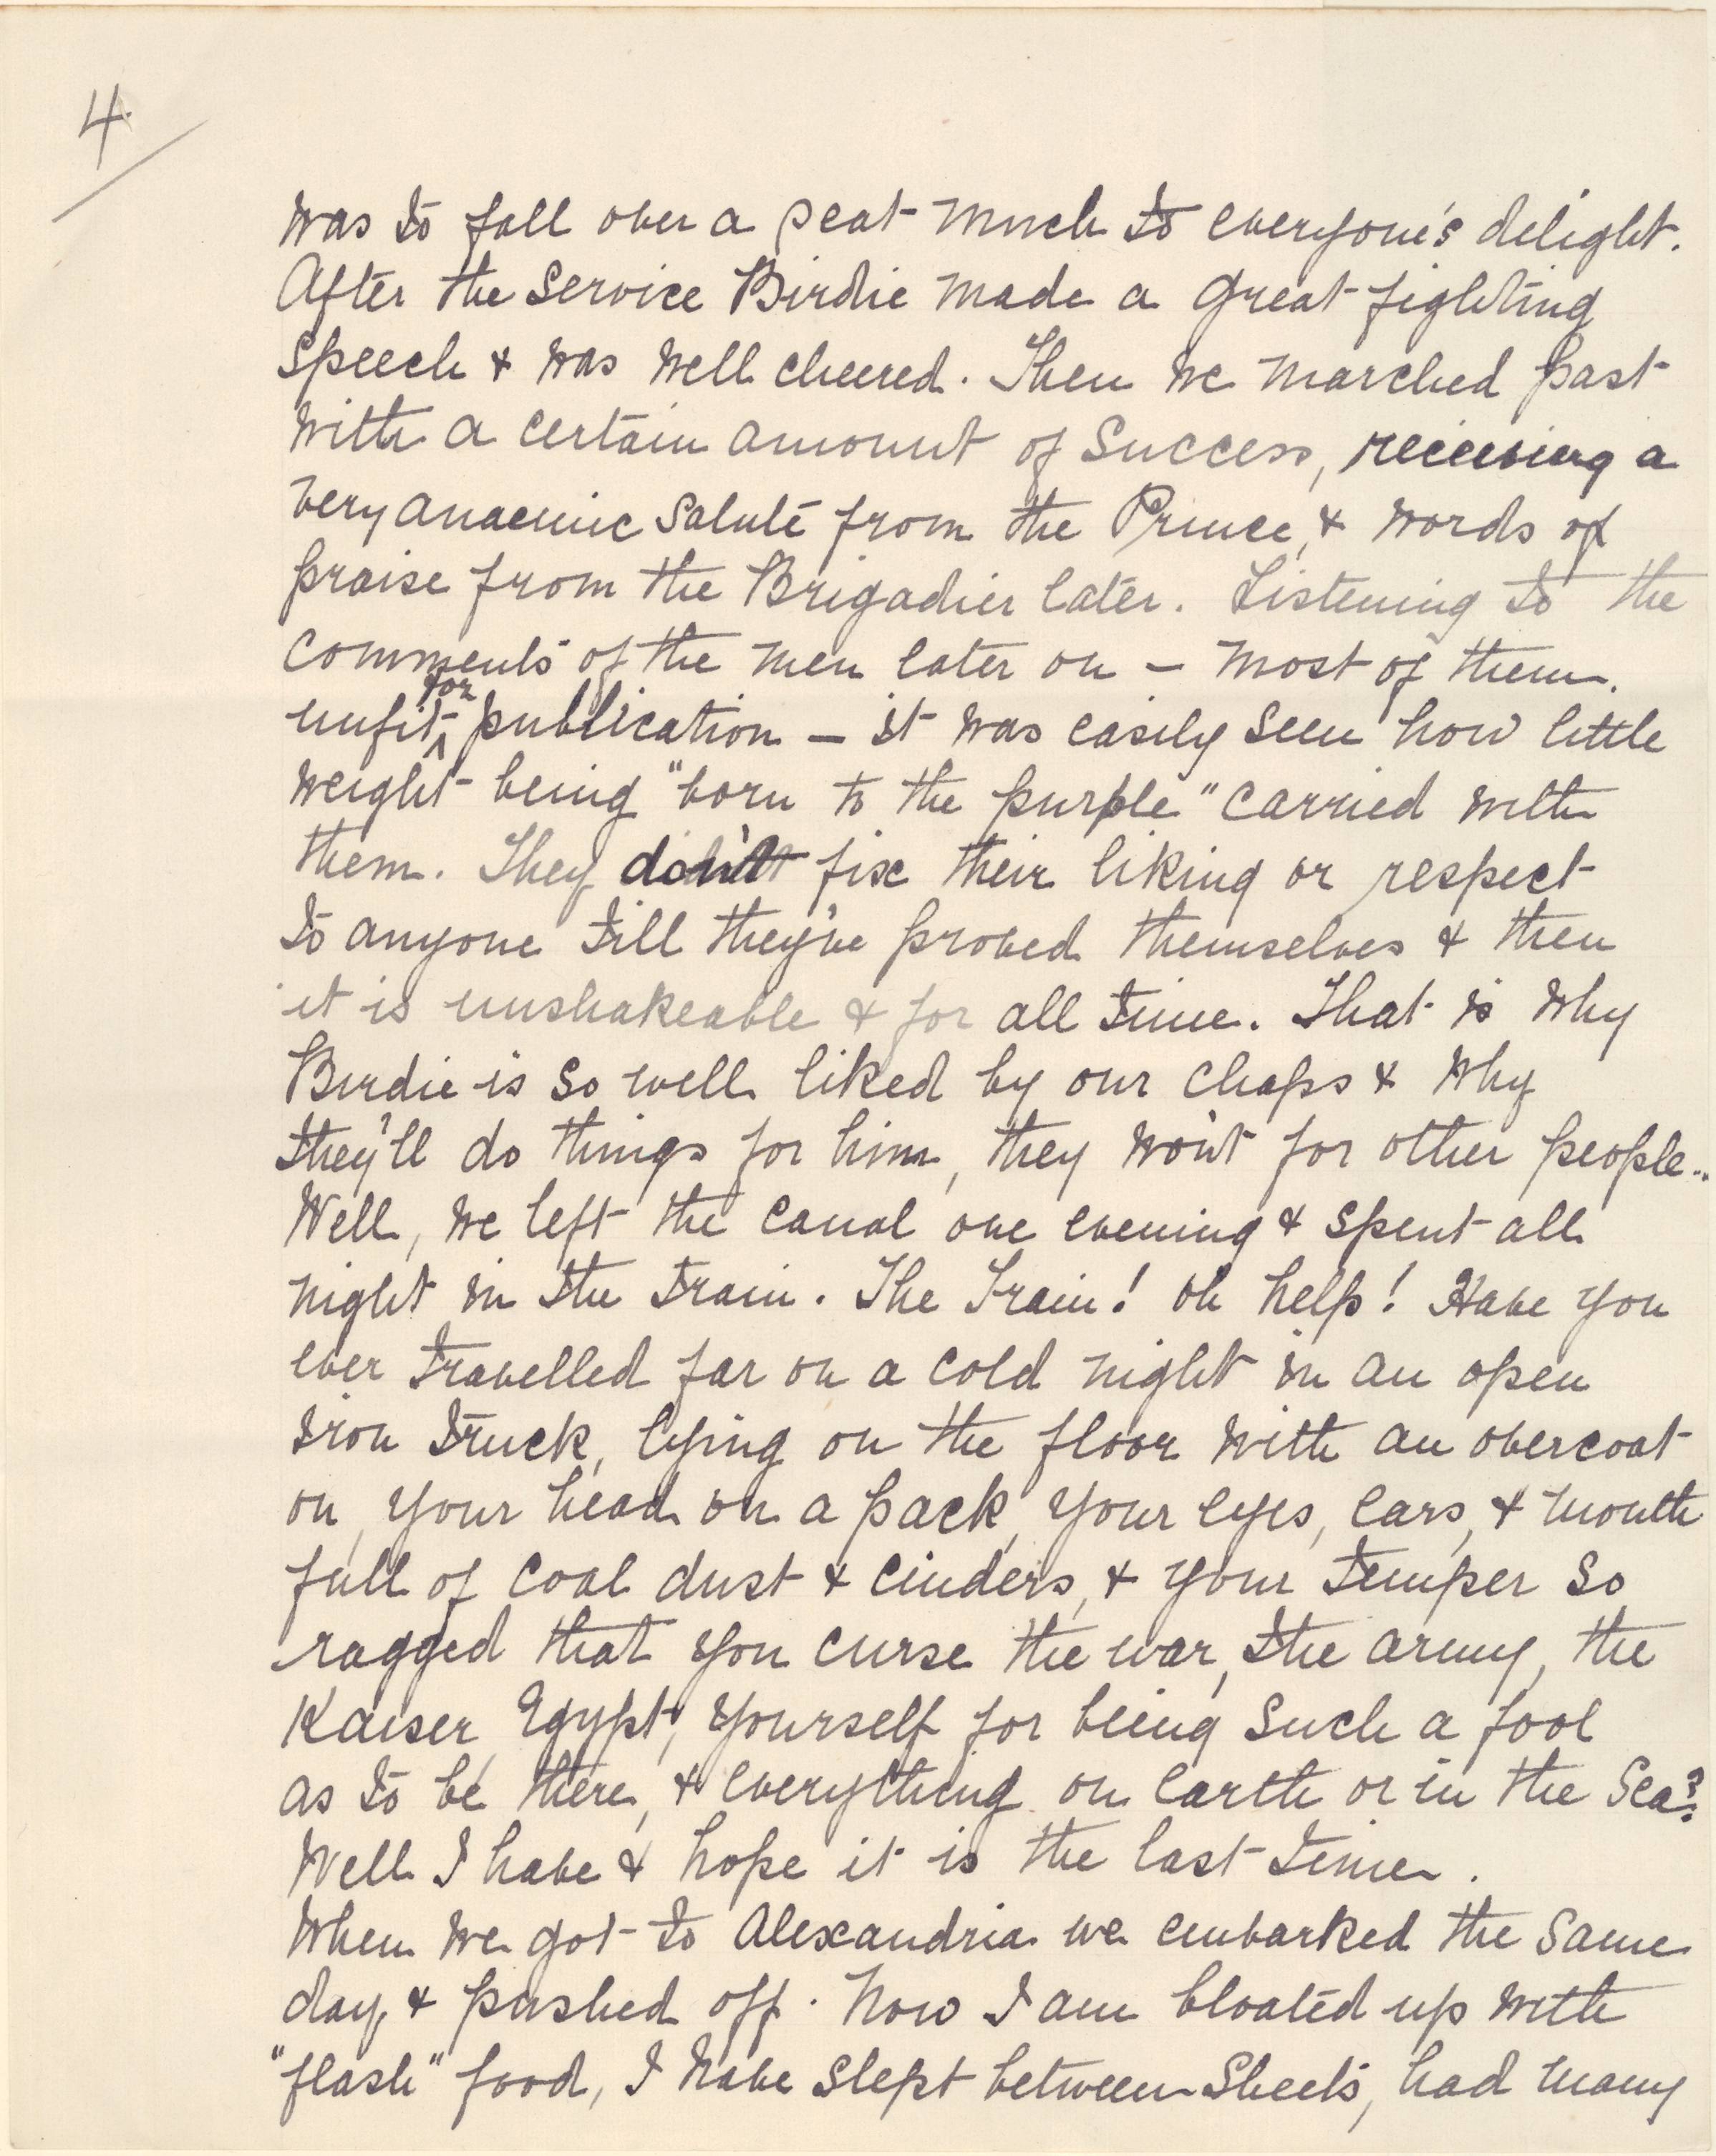 4
was to fall over a seat much to everyone's delight.
After the Service Birdie made a great fighting
speech & was well cheered. Then we marched past
with a certain amount of success, receiving a
very anaemic salute from the Prince, & words of
praise from the Brigadier later. Listening to the
comments of the men later on – most of them
for
unfit publication – it was easily seen how little
weight being "born to the purple" carried with
them. They don't fix their liking or respect
to anyone till they've proved themselves & then
it is unshakeable & for all time. That is why
Birdie is so well liked by our chaps & why
they'll do things for him, they won't for other people..
Well, we left the canal one evening & spent all
night in the train. The Train! Oh help! Have you
ever travelled far on a cold night in an open
iron truck, lying on the floor with an overcoat
on, your head on a pack, your eyes, ears, & mouth
full of coal dust & cinders, & your temper so
ragged that you curse the war, the army, the
Kaiser, Egypt, yourself for being such a fool
as to be there, & everything on earth or in the sea?
Well I have & hope it is the last time.
When we got to Alexandria we embarked the same
day, & pushed off. Now I am bloated up with
"flash" food, I have slept between sheets, had many